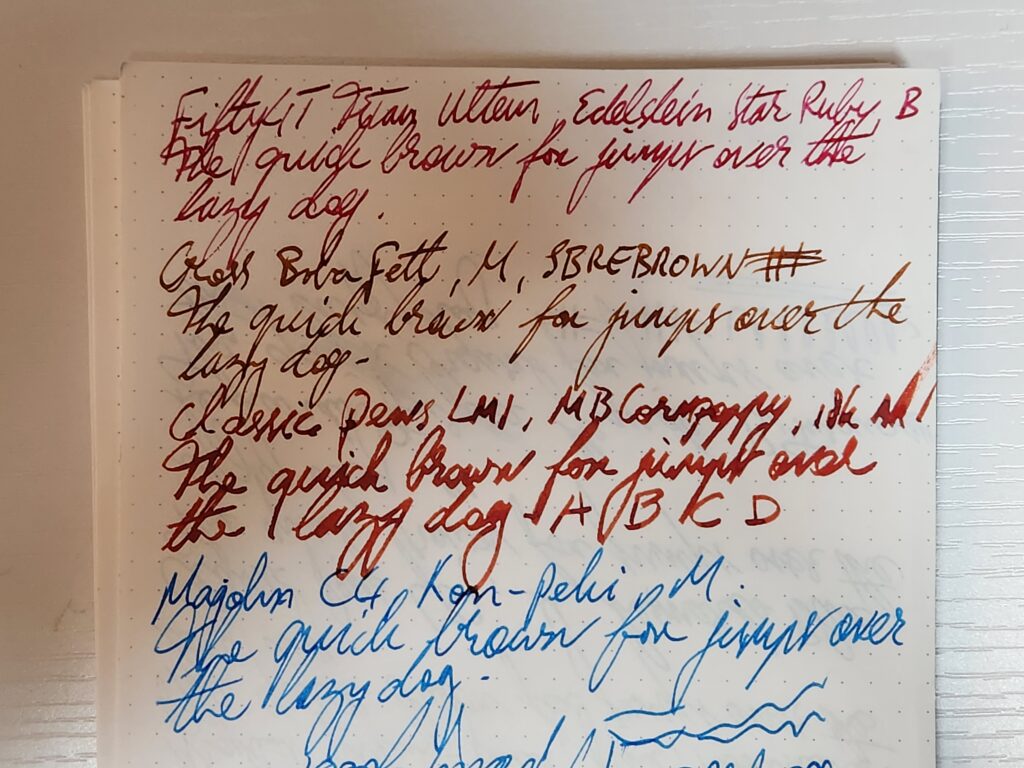 Edelstein Star Ruby, B
The quick brown fox jumps over the
lazy dog.
Cross Boba Fett, M, SBREBROWN
The quick brown fox jumps over the
lazy dog-
Classic Pens LM1, MB Cornpoppy, 18k M
The quick brown fox jumps over
the lazy dog - A B C D
Majohn C4 Kon-Peki, M.
The quick brown fox jumps over
the lazy dog.